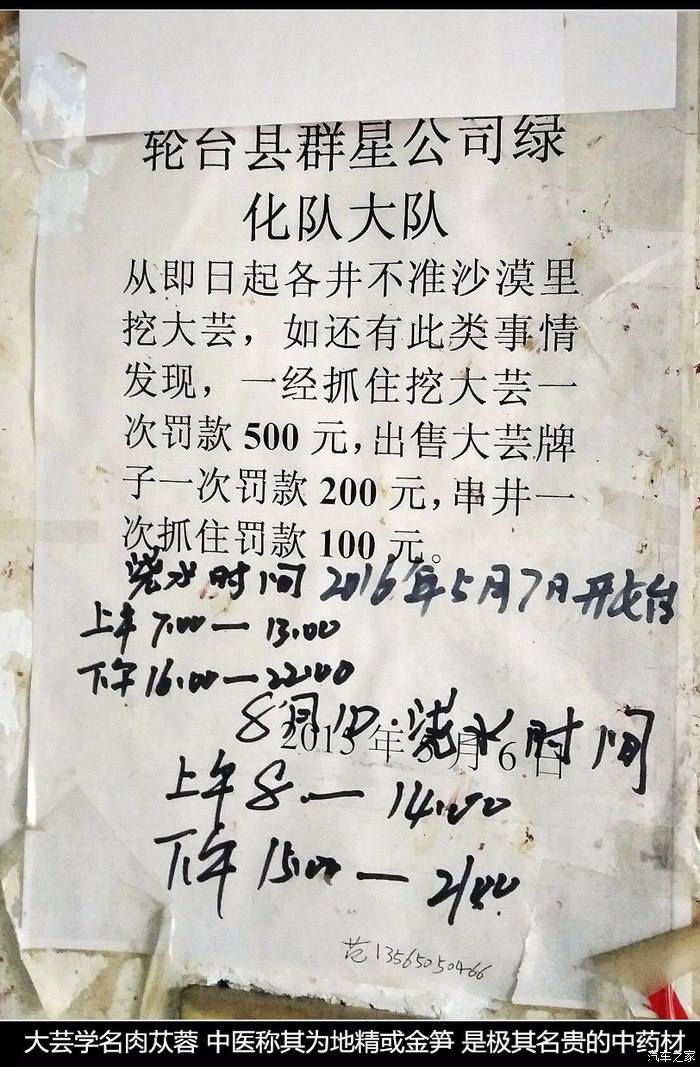 轮台县群星公司绿
化队大队
从即日起各井不准沙漠里
挖大芸，如还有此类事情
发现，一经抓住挖大芸一
次罚款 500 元，出售大芸牌
子一次罚款 200 元，串井一
次抓住罚款 100 元。
浇水时间 2016年5月7日开始
上午 7:00 — 13:00
下午 16:00 — 22:00
8月1日 浇水时间
2015 年 5 月 6 日
上午 8. — 14:00
下午 15:00 — 21:00
范 13565050466
大芸学名肉苁蓉 中医称其为地精或金笋 是极其名贵的中药材
汽车之家